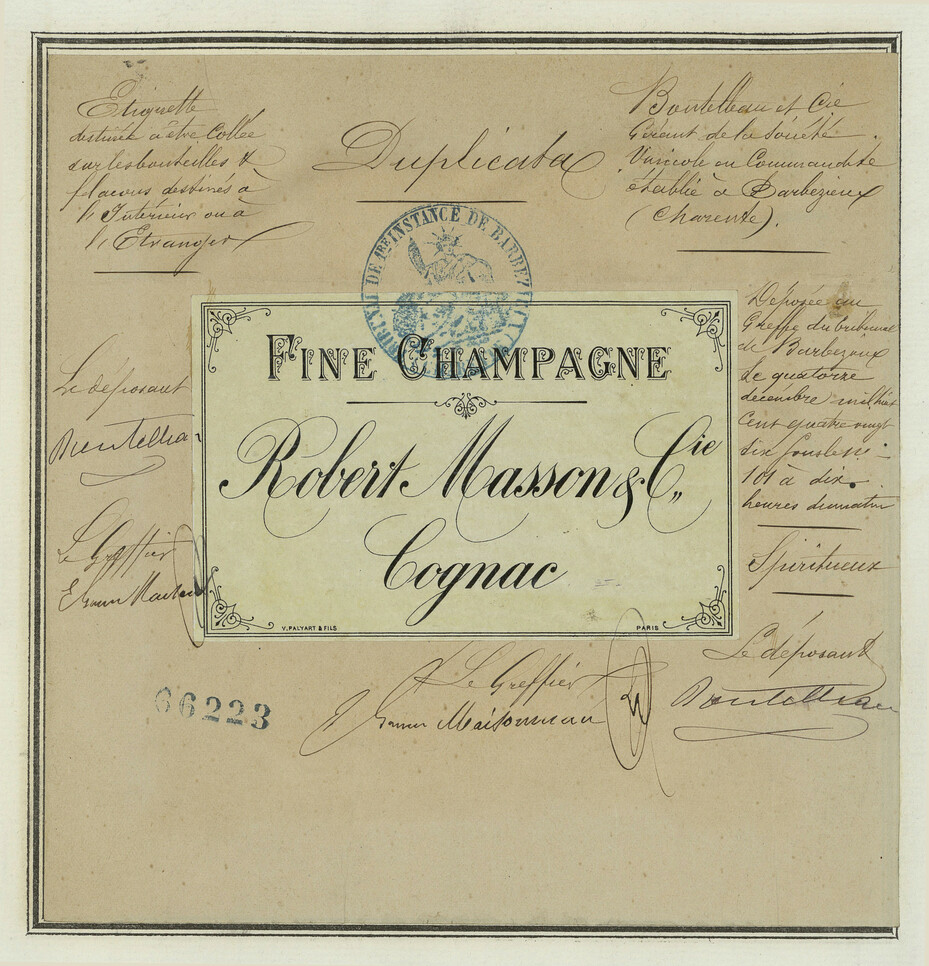 Etiquette
destinée à être Collée
sur les bouteilles &
flacons destinés à
l'Intérieur ou à
l'Etranger
Duplicata
Boutelleau et Cie
Gérant de la Société
Vinicole en Commandite
établie à Barbezieux
(Charente).
TRIBUNAL DE 1RE INSTANCE DE BARBEZIEUX
Déposée au
Greffe du tribunal
de Barbezieux
Le quatorze
décembre mil huit
Cent quatre vingt
dix sous le n°
101 à dix
heures du matin
Spiritueux
Le déposant
Boutelleau
Le déposant
Boutelleau
Le Greffier
FINE CHAMPAGNE
Robert Masson & Cie
Cognac
V. PALYART & FILS
PARIS
Le Greffier
Maisonneuve
66223